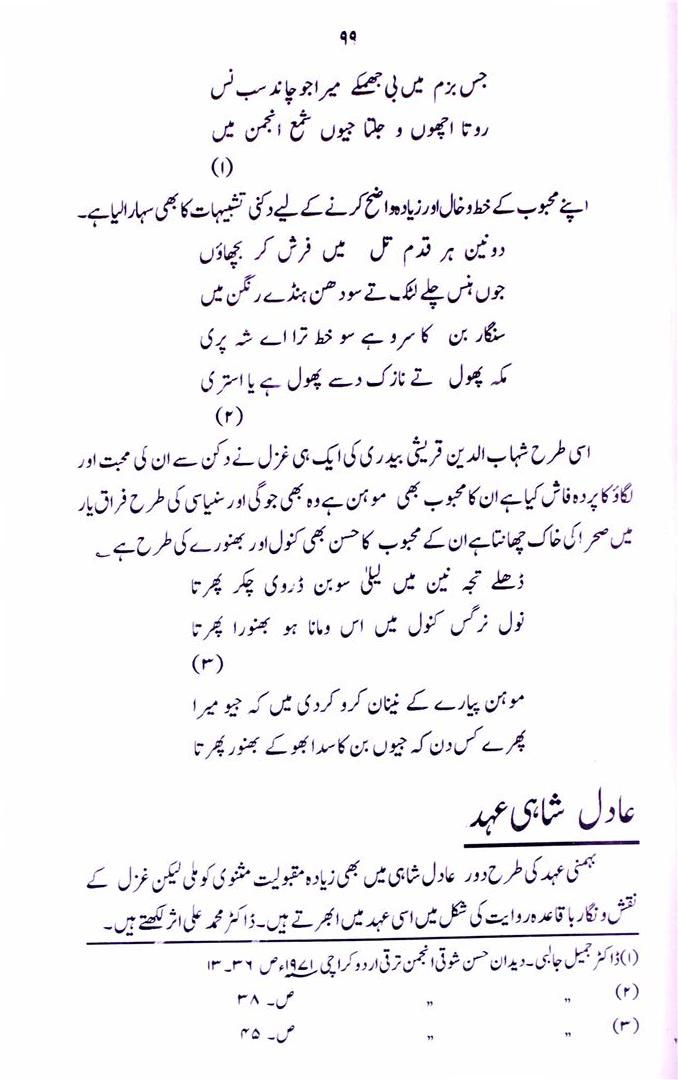 ۹۹
جس بزم میں بی جھمکے میرا جو چاند سب نس
روتا اچھوں و جلتا جیوں شمع انجمن میں
(۱)
اپنے محبوب کے خط و خال اور زیادہ واضح کرنے کے لیے دکنی تشبیہات کا بھی سہارا لیا ہے۔
دونین ہر قدم تل میں فرش کر بچھاؤں
جوں ہنس چلے لٹک تے سودھن ہنڈے رنگن میں
سنگار بن کا سرو ہے سو خط ترا اے شہ پری
مکہ پھول تے نازک دسے پھول ہے یا استری
(۲)
اسی طرح شہاب الدین قریشی بیدری کی ایک ہی غزل نے دکن سے ان کی محبت اور
لگاؤ کا پردہ فاش کیا ہے ان کا محبوب بھی موہن ہے وہ بھی جوگی اور سنیاسی کی طرح فراق یار
میں صحرا کی خاک چھانتا ہے ان کے محبوب کا حسن بھی کنول اور بھنورے کی طرح ہے ؎
ڈھلے تجہ نین میں لیلیٰ سوبن ڈروی چکر پھرتا
نول نرگس کنول میں اس ومانا ہو بھنورا پھرتا
(۳)
موہن پیارے کے نینان کرو کردی میں کہ جیو میرا
پھرے کس دن کہ جیوں بن کا سدا بھو کے بھنور پھرتا
عادل شاہی عہد
بہمنی عہد کی طرح دور عادل شاہی میں بھی زیادہ مقبولیت مثنوی کو ملی لیکن غزل کے
نقش و نگار با قاعدہ روایت کی شکل میں اسی عہد میں ابھرتے ہیں۔ ڈاکٹر محمد علی اثر لکھتے ہیں۔
(۱) ڈاکٹر جمیل جالبی۔ دیدان حسن شوقی انجمن ترقی اردو کراچی ۱۹۷۱ء ص ۳۶۔ ۱۳
(۲) " " ص۔ ۳۸
(۳) " " ص۔ ۴۵